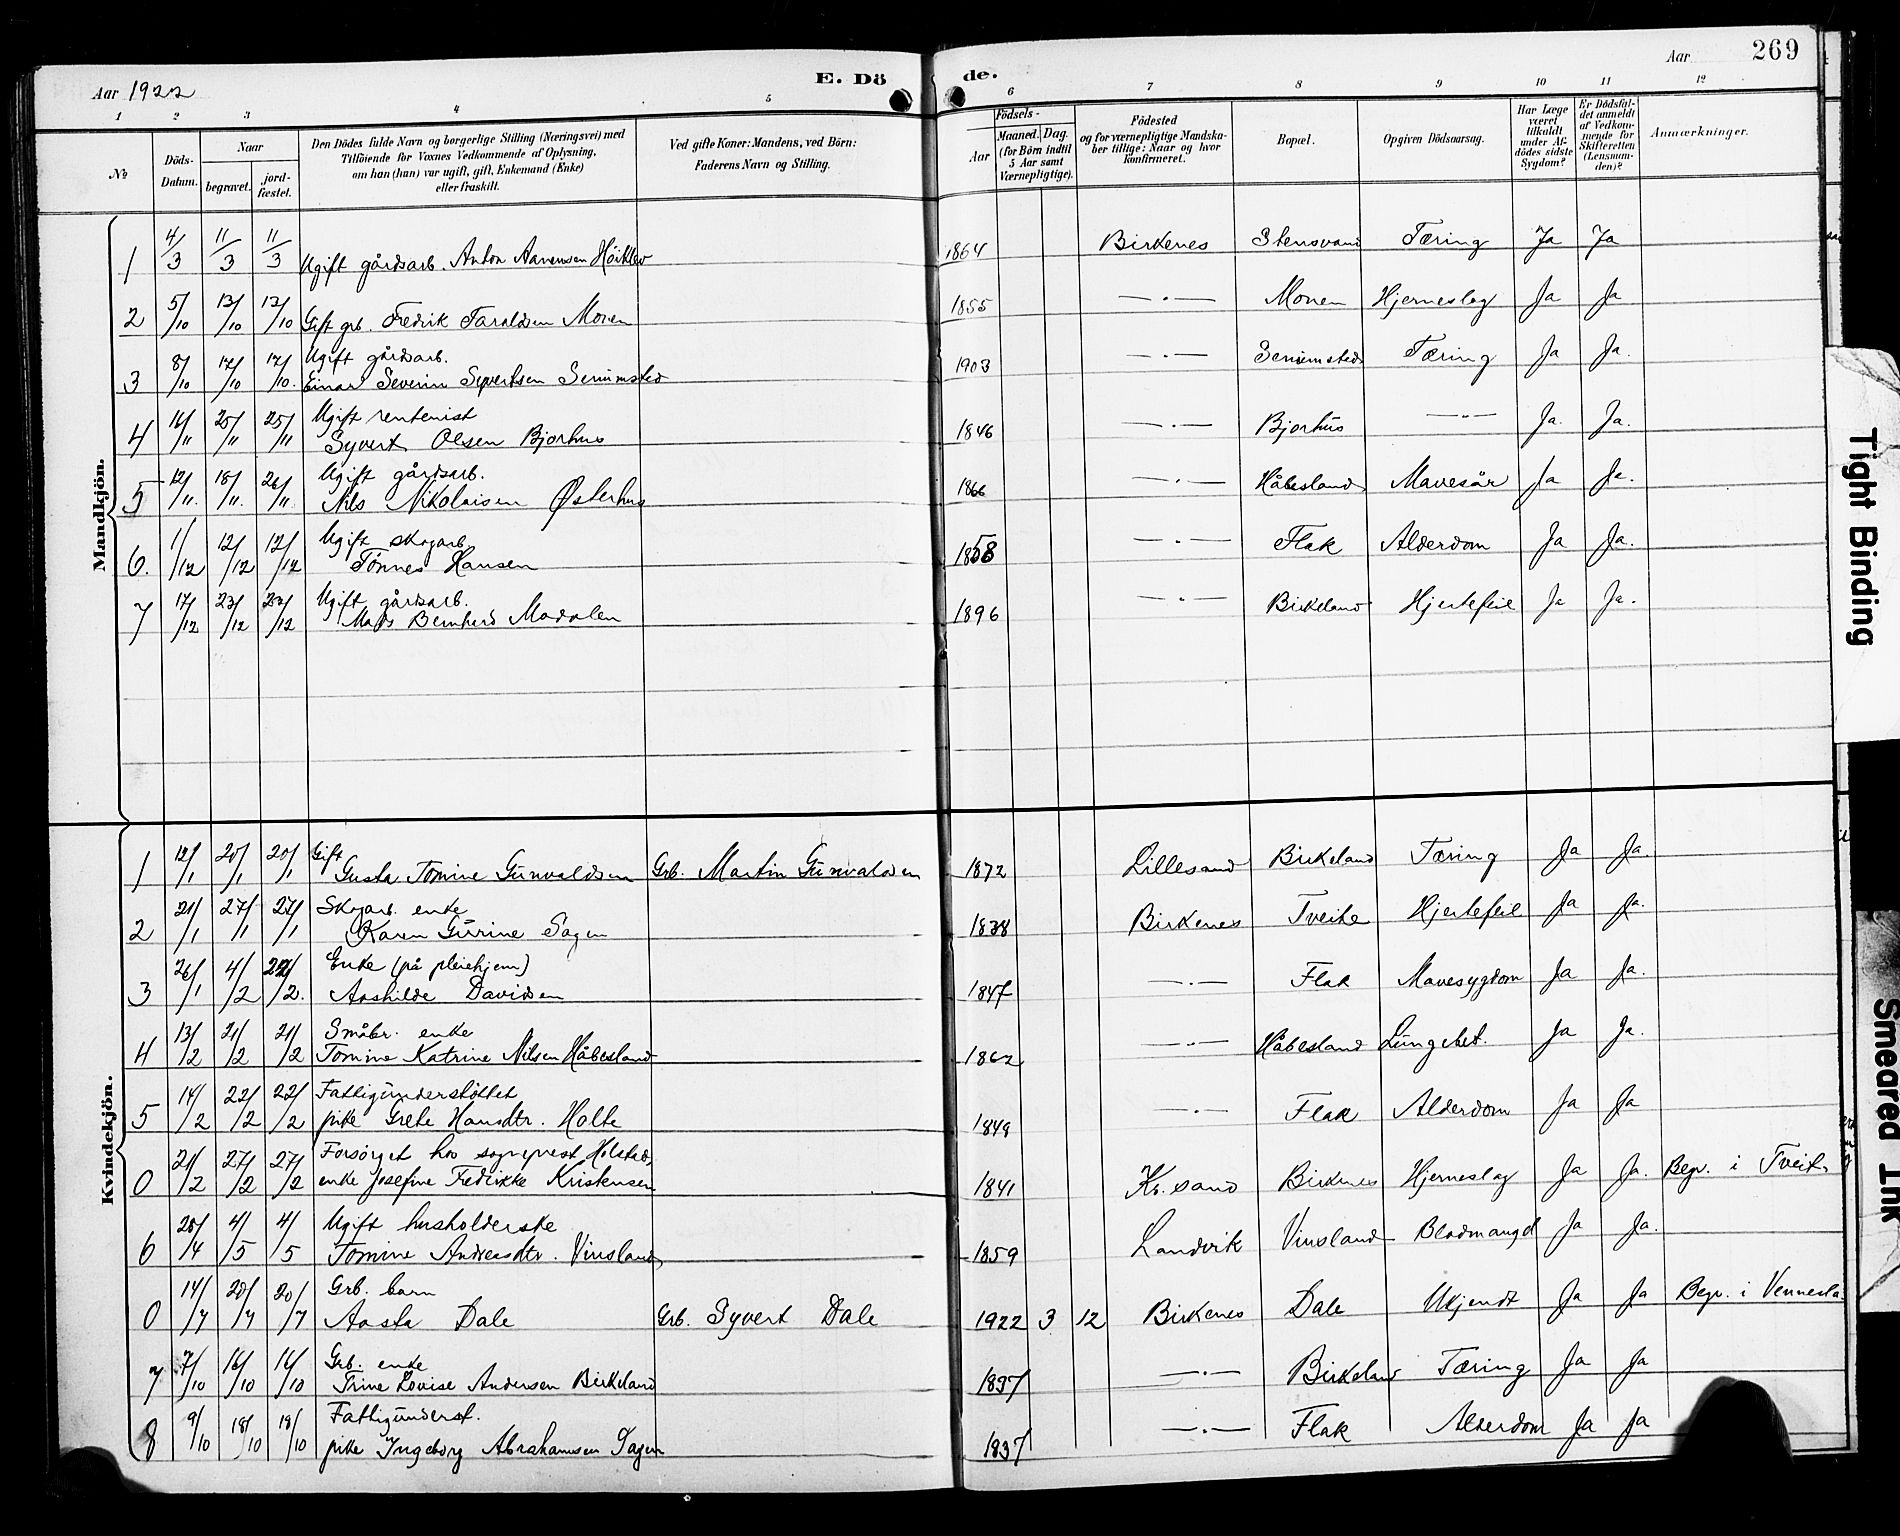 Aar 1922
E. Dö
de.
Aar
269
1 2 3 4 5 6 7 8 9 10 11 12
No
Döds-Datum.
Naar
begravet.
jord-fæstet.
Den Dödes fulde Navn og borgerlige Stilling (Næringsvei) med
Tilföiende for Voxnes Vedkommende af Oplysning,
om han (hun) var ugift, gift, Enkemand (Enke)
eller fraskilt.
Ved gifte Koner: Mandens, ved Börn:
Faderens Navn og Stilling.
Födsels-
Aar
Maaned. Dag.
(for Börn indtil
5 Aar samt
Værnepligtige).
Födested
og for værnepligtige Mandska-
ber tillige: Naar og hvor
konfirmeret.
Bopæl.
Opgiven Dödsaarsag.
Har Læge
været
tilkaldt
under Af-
dödes sidste
Sygdom?
Er Dödsfal-
det anmeldt
af Vedkom-
mende for
Skifteretten
(Lensman-
den)?
Anmærkninger.
Mandkjön.
1 4/3 11/3 11/3 Ugift gårdsarb. Anton Aanensen Höiklev 1864 Birkenes Stensvand Tæring Ja Ja
2 5/10 13/10 13/10 Gift grb. Fredrik Taraldsen Moen 1855 —·— Moen Hjerneslag Ja Ja
3 8/10 17/10 17/10. Ugift gårdsarb.
Einar Severin Syvertsen Senumsted 1903 —·— Senumsted Tæring Ja Ja.
4 16/11 25/11 25/11 Ugift rentenist
Syvert Olsen Bjorhus 1846 —·— Bjorhus —"— Ja. Ja.
5 12/11. 18/11. 26/11. Ugift gårdsarb.
Nils Nikolaisen Østerhus 1866 —·— Håbesland Mavesår Ja Ja.
6. 1/12 12/12 12/12 Ugift skogarb.
Tönnes Hansen 1858 —·— Flak Alderdom Ja Ja.
7 17/12 23/12 23/12 Ugift gårdsarb.
Mads Bernhard Modalen 1896 —·— Birkeland Hjertefeil Ja Ja.
Kvindekjön.
1 12/1 20/1 20/1 Gift
Gusta Tomine Gunvaldsen Grb. Martin Gunvaldsen 1872 Lillesand Birkeland Tæring Ja Ja.
2 21/1 27/1 27/1 Skogarb. enke
Karen Gurine Sagen 1838 Birkenes Tveite Hjertefeil Ja Ja.
3 26/1 4/2 22/2. Enke (på pleiehjem)
Aashilde Davidsen 1847 —·— Flak Mavesygdom Ja Ja.
4 13/2 21/2 21/2 Småbr. enke
Tomine Katrine Nilsen Håbesland 1862 —·— Håbesland Lungebet. Ja Ja.
5 14/2 22/2 22/2 Fattigunderstöttet
pike Grete Hansdtr. Holte 1849 —·— Flak Alderdom Ja Ja
0 21/2 27/2 27/2 Forsörget hos sogneprest Holstad,
enke Josefine Fredrikke Kristensen 1841 Kr.sand Birkenes Hjerneslag Ja Ja. Begr. i Tveit.
6 25/4 4/5 4/5 Ugift husholderske
Tomine Andreasdtr. Vinsland 1859 Landvik Vinsland Blodmangel Ja Ja.
0 14/7 20/7 20/7 Grb. barn
Aasta Dale Grb. Syvert Dale 1922 3 12 Birkenes Dale Ukjendt Ja Ja Begr. i Vennesla
7 7/10 16/10 16/10 Grb. enke
Trine Lovise Andersen Birkeland 1837 —·— Birkeland Tæring Ja Ja
8 9/10 18/10 18/10 Fattigunderst.
pike Ingeborg Abrahamsen Sagen 1837 —·— Flak Alderdom Ja Ja
Tight Binding
Smeared Ink